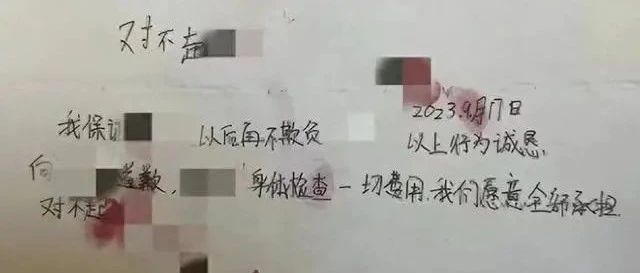 对不起
2023.9月17日
我保证 以后再不欺负 以上行为诚恳,
向 道歉, 身体检查一切费用,我们愿意全部承担
对不起